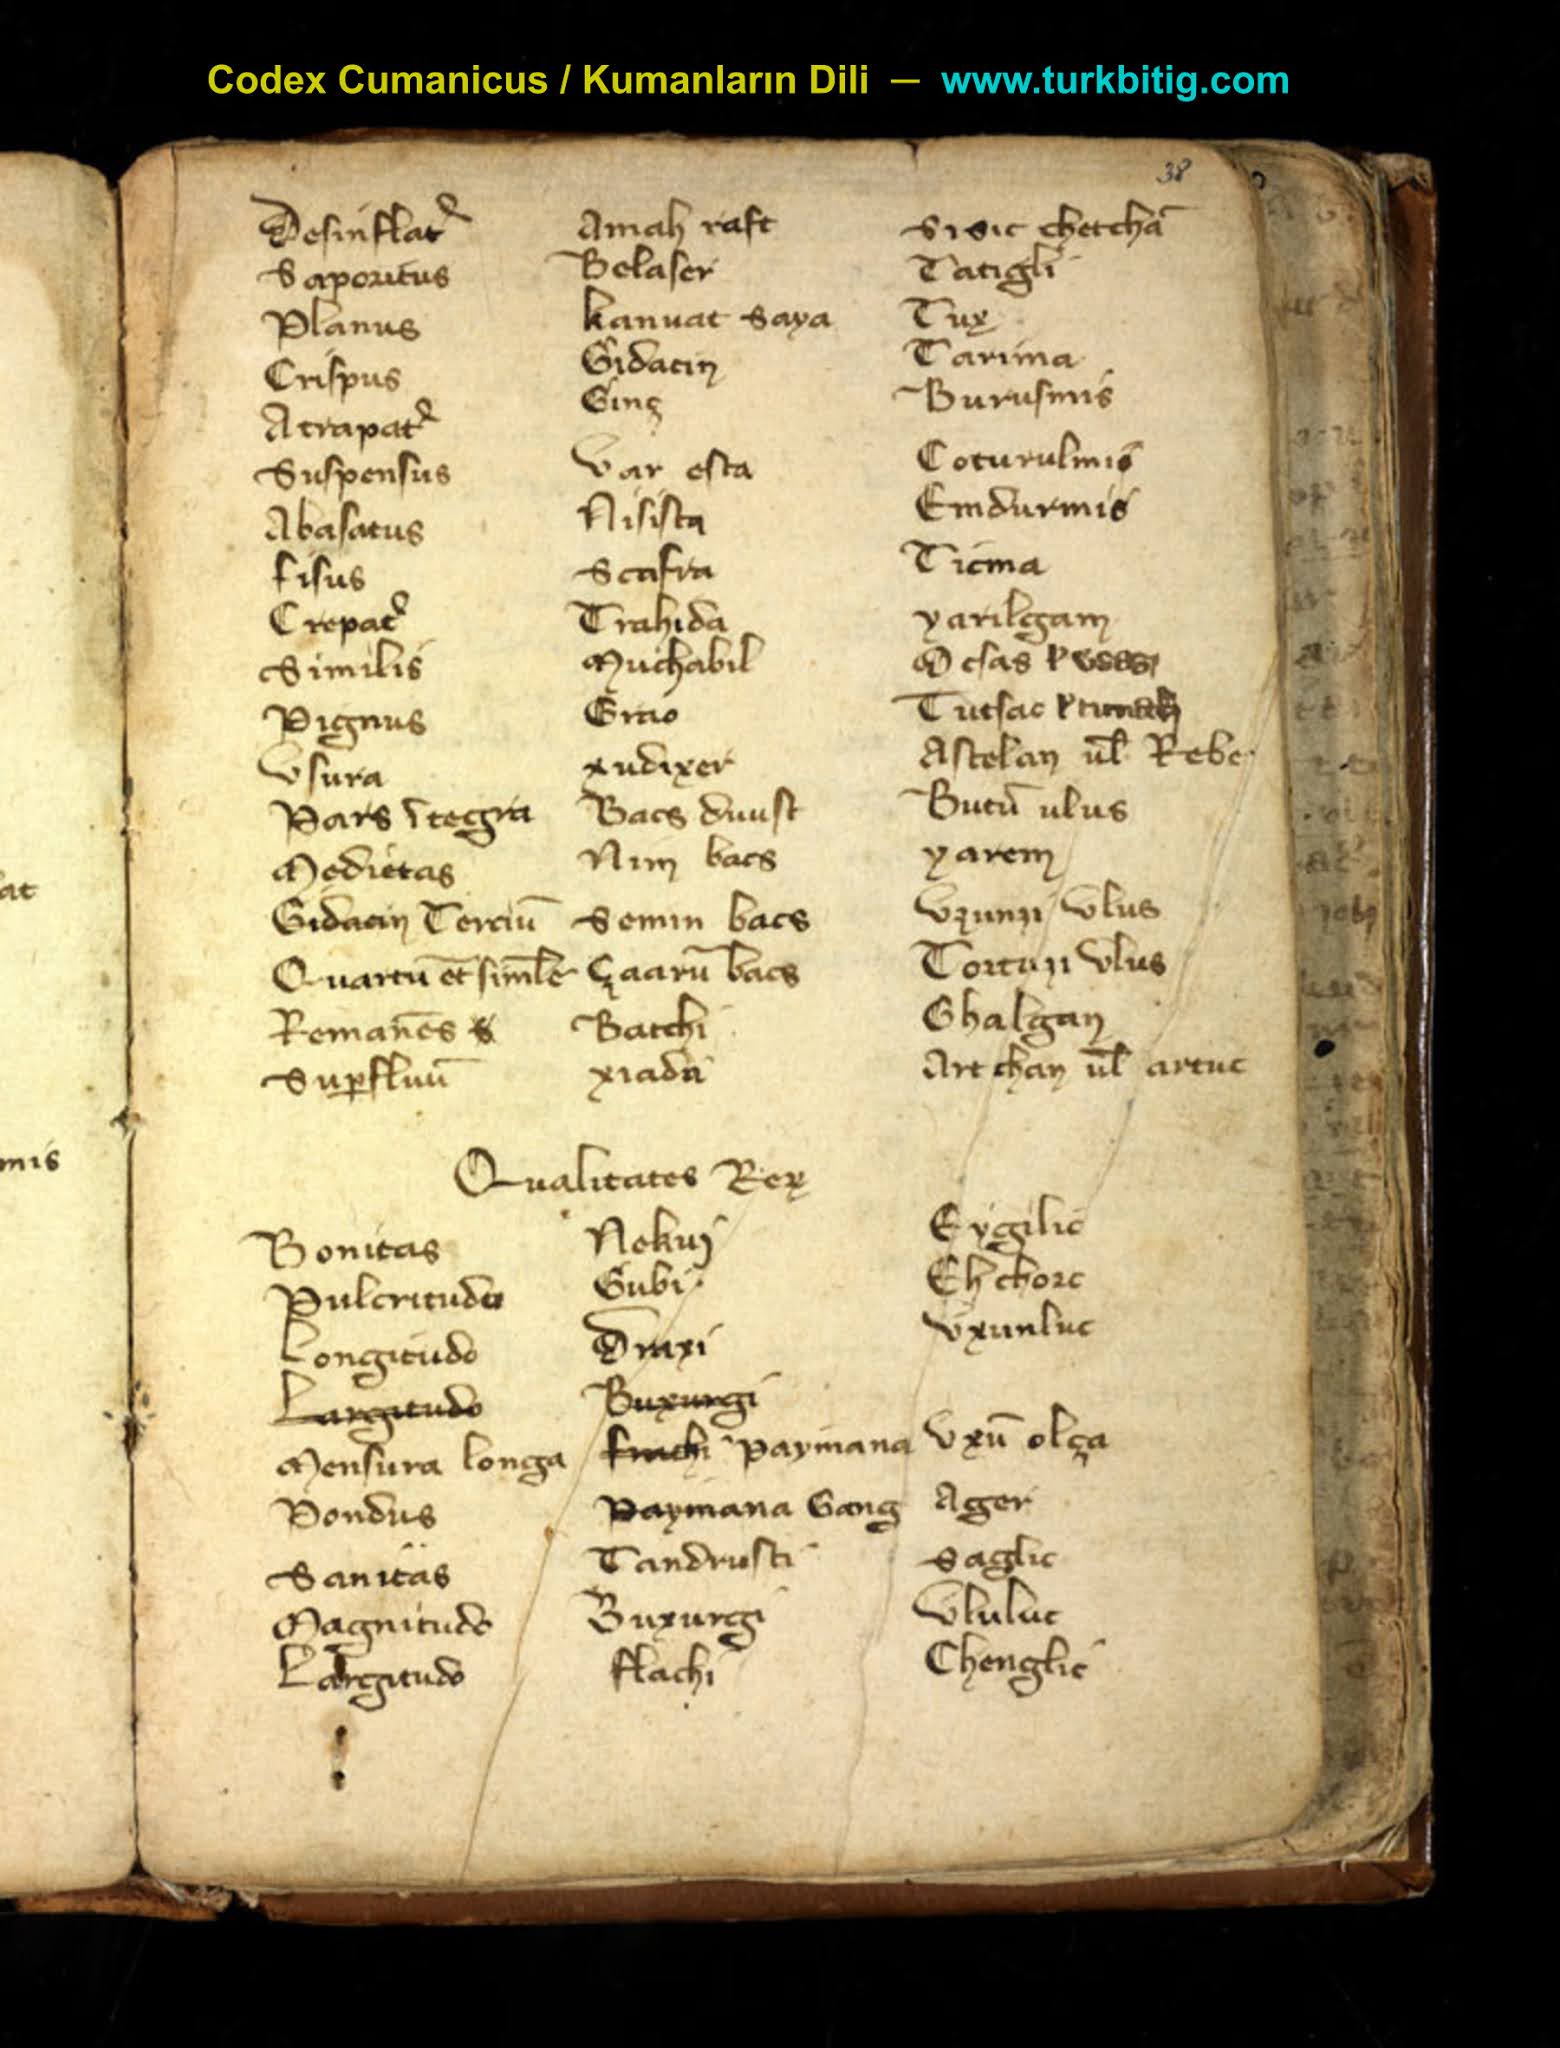 Codex Cumanicus / Kumanların Dili — www.turkbitig.com
38
Desinflat᷑ Amah raft Sisic chetchā
Saporitus Belaser Tatigli
Planus kanuat saya Tux
Crispus Gidacin Tarima
Atrapat᷑ Ging Burusmis
Suspensus Var esta Coturulmis
Abasatus Nisista Emdurmis
fisus Scafra Ticma
Crepat᷑ Trahida yarilgam
Similis Muchabil Ocsas
Pignus Grao Tutsac
Vsura xudixer Astelan ul̄ Rebe
Pars ītegra Bacs duust Butū ulus
Medietas Nim bacs yarem
Gidacin Terciū Semin bacs Vzunzi Vlus
Quartū et simlēr çaarū bacs Tortuzi Vlus
Remanēs Batchi Ghalgan
Supfluū xiadii Artchan ul̄ artuc
Qualitates Reꝝ
Bonitas Nekuj Eygilic
Pulcritudo Gubi Ehchorc
Longitudo Draxi Vxunluc
Largitudo Buxurgi
Mensura longa frachi paymana Vxū olça
Pondus Paymana Gang Ager
Sanitas Tandrusti Saglic
Magnitudo Buxurgi Vluluc
Largitudo flachi Chenglic
at
mis